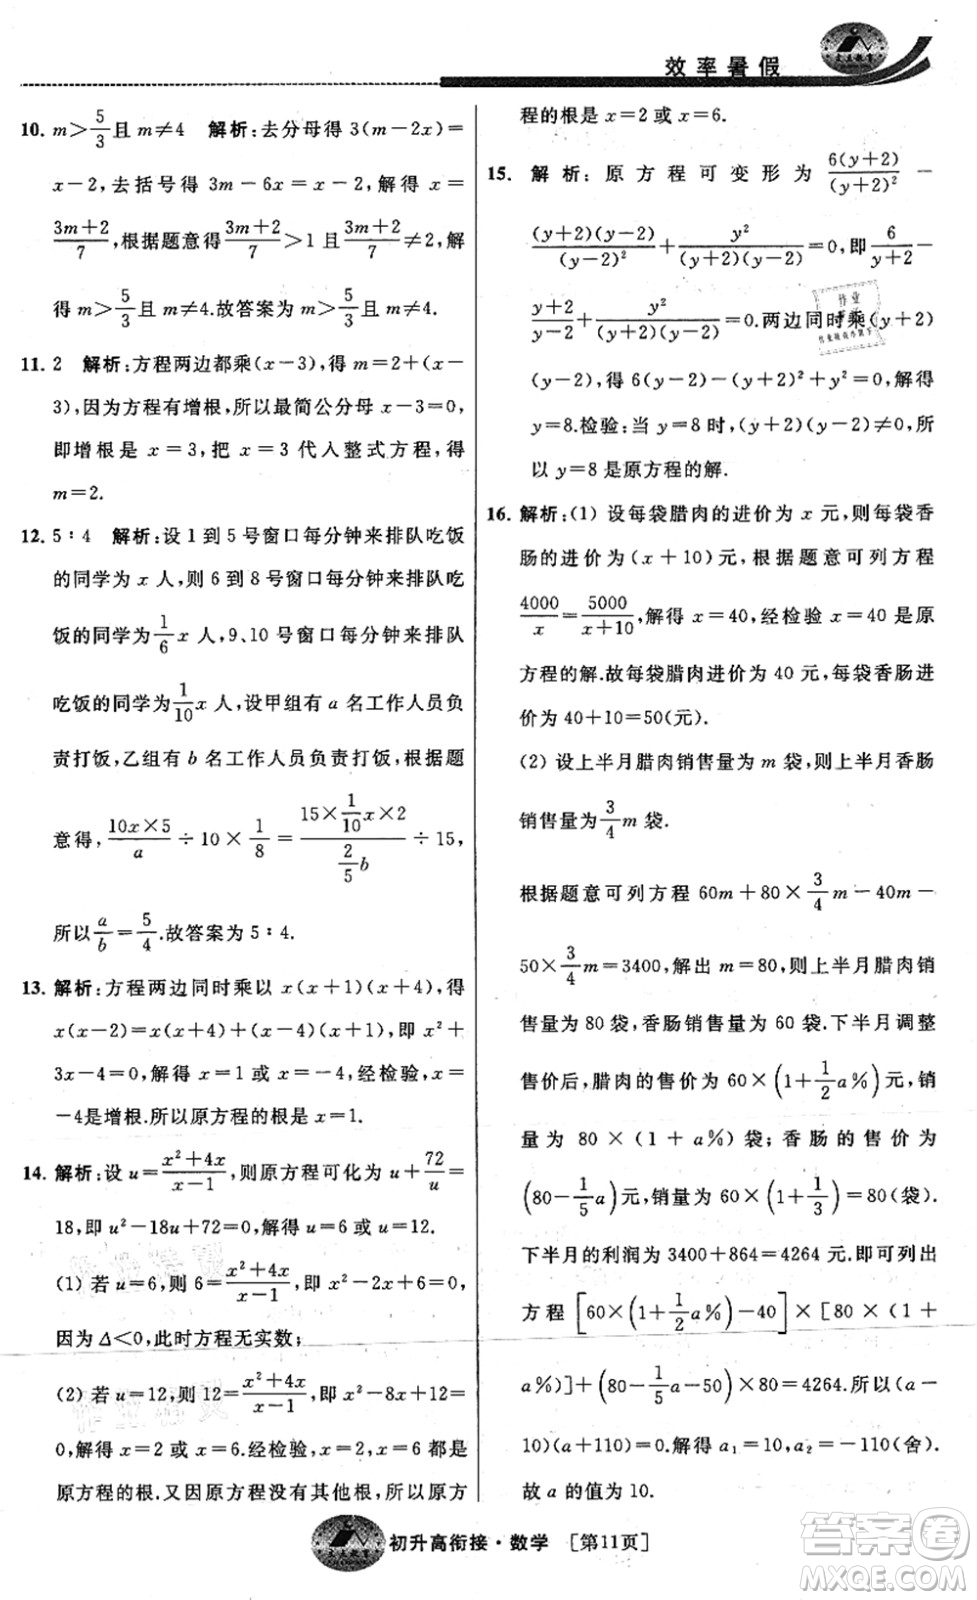 效率暑假
10. m>5/3且 m≠4 解析:去分母得 3(m-2x)=
x-2,去括号得 3m-6x=x-2,解得 x=
(3m+2)/7,根据题意得(3m+2)/7>1 且(3m+2)/7≠2,解
得 m>5/3且 m≠4.故答案为 m>5/3且 m≠4.
11. 2 解析:方程两边都乘(x-3),得 m=2+(x-
3),因为方程有增根,所以最简公分母 x-3=0,
即增根为 x=3,把 x=3 代入整式方程,得
m=2.
12. 5∶4 解析:设 1 到 5 号窗口每分钟来排队吃饭
的同学为 x 人,则 6 到 8 号窗口每分钟来排队吃
饭的同学为1/6 x 人,9、10 号窗口每分钟来排队
吃饭的同学为1/10 x 人,设甲组有 a 名工作人员负
责打饭,乙组有 b 名工作人员负责打饭,根据题
意得,(10x×5)/a÷10×1/8=(15×1/10 x×2)/(2/5 b)÷15,
所以a/b=5/4.故答案为 5∶4.
13. 解析:方程两边同时乘以 x(x+1)(x+4),得
x(x-2)=x(x+4)+(x-4)(x+1),即 x²+
3x-4=0,解得 x=1 或 x=-4,经检验,x=
-4是增根.所以原方程的根是 x=1.
14. 解析:设 u=(x²+4x)/(x-1),则原方程可化为 u+72/u=
18,即 u²-18u+72=0,解得 u=6 或 u=12.
(1) 若 u=6,则 6=(x²+4x)/(x-1),即 x²-2x+6=0,
因为 Δ<0,此时方程无实数;
(2) 若 u=12,则 12=(x²+4x)/(x-1),x²-8x+12=
0,解得 x=2 或 x=6.经检验,x=2,x=6 都是
原方程的根.又因原方程没有其他根,所以原方
程的根是 x=2 或 x=6.
15. 解析:原方程可变形为 6(y+2)/(y+2)²-
(y+2)(y-2)/(y-2)²+y²/((y+2)(y-2))=0,即6/(y+2)-
(y+2)/(y-2)+y²/((y+2)(y-2))=0.两边同时乘(y+2)
(y-2),得 6(y-2)-(y+2)²+y²=0,解得
y=8.检验:当 y=8 时,(y+2)(y-2)≠0,所
以 y=8 是原方程的解.
16. 解析:(1) 设每袋腊肉的进价为 x 元,则每袋香
肠的进价为(x+10)元,根据题意可列方程
4000/x=5000/(x+10),解得 x=40,经检验 x=40 是原
方程的解.故每袋腊肉进价为 40 元,每袋香肠进
价为 40+10=50(元).
(2) 设上半月腊肉销售量为 m 袋,则上半月香肠
销售量为3/4 m 袋.
根据题意可列方程 60m+80×3/4 m-40m-
50×3/4 m=3400,解出 m=80,上半月腊肉销
售量为 80 袋,香肠销售量为 60 袋.下半月调整
售价后,腊肉的售价为 60×(1+1/2 a%)元,销
量为 80×(1+a%)袋;香肠的售价为
(80-1/5 a)元,销量为 60×(1+1/3)=80(袋).
下半月的利润为 3400+864=4264 元.即可列出
方程[60×(1+1/2 a%)-40]×[80×(1+
a%)]+(80-1/5 a-50)×80=4264.所以(a-
10)(a+110)=0.解得 a₁=10,a₂=-110(舍).
故 a 的值为 10.
初升高衔接·数学 [第11页]
答案圈
MXQE.COM